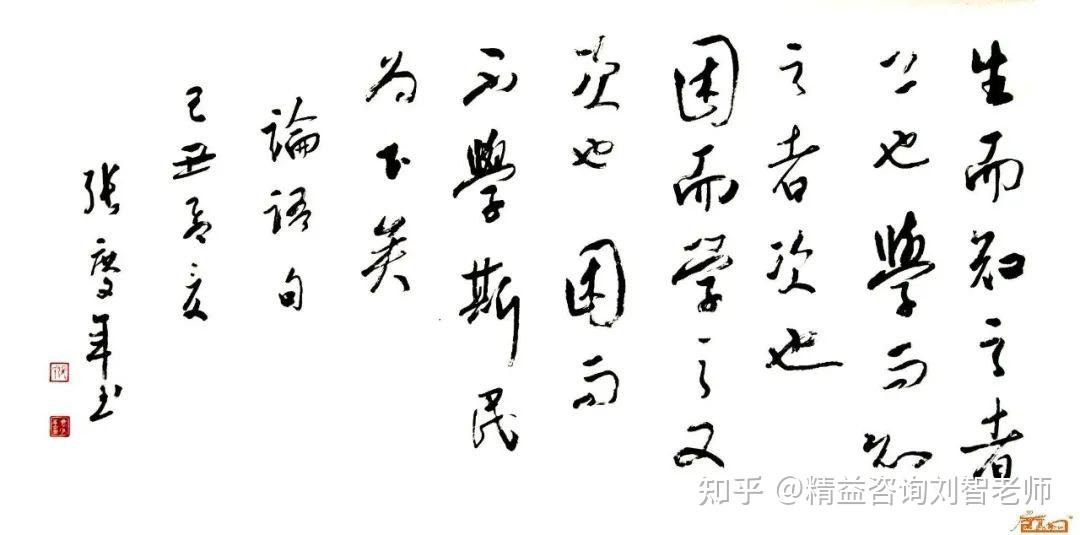 生而知之者
上也學而知
之者次也
困而学之又
次也困而
不學斯民
为下矣
論語句
己丑孟夏
張慶年书
知乎 @精益咨询刘智老师